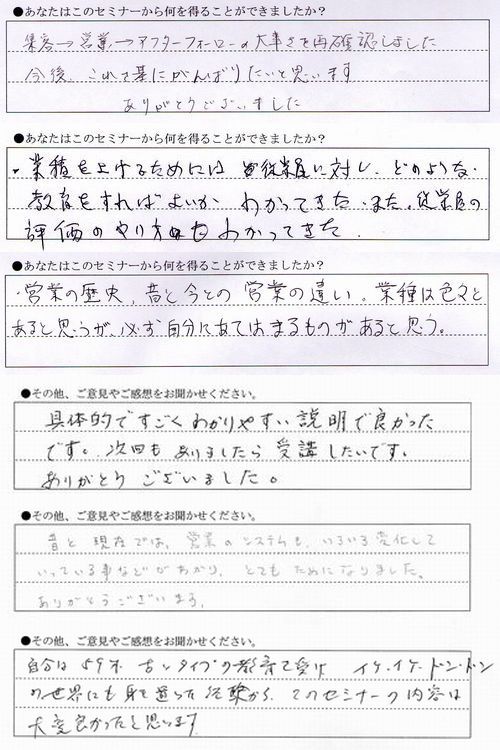 ●あなたはこのセミナーから何を得ることができましたか？
集客→営業→アフターフォローの大事さを再確認しました
今後、これを基にがんばりたいと思います
ありがとうございました
●あなたはこのセミナーから何を得ることができましたか？
・業績を上げるためには 従業員に対し、どのような
教育をすればよいか わかってきた。また、従業員の
評価のやり方もわかってきた。
●あなたはこのセミナーから何を得ることができましたか？
・営業の歴史、昔と今との営業の違い。業種は色々と
あると思うが、必ず自分にあてはまるものがあると思う。
●その他、ご意見やご感想をお聞かせください。
具体的ですごくわかりやすい説明で良かった
です。次回もありましたら受講したいです。
ありがとうございました。
●その他、ご意見やご感想をお聞かせください。
昔と現在では、営業のシステムも、いろいろ変化して
いっている事などがわかり、とてもためになりました。
ありがとうございます。
●その他、ご意見やご感想をお聞かせください。
自分は59才 古いタイプの教育で受け イケ・イケ・ドン・ドン
の世界にも身を置った経験から、このセミナーの内容は
大変良かったと思います